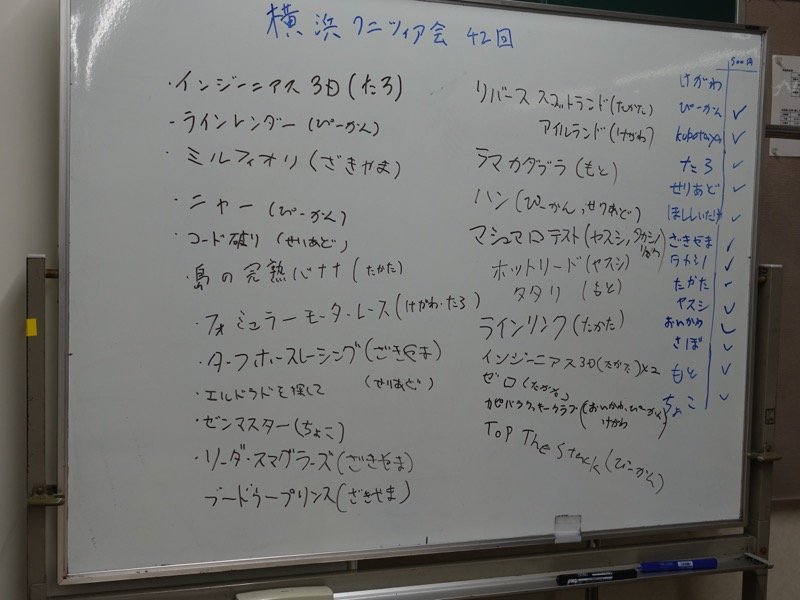 横浜クニツィア会 42回
・インジーニアス3D(たろ)
・ラインレンダー(ぴーかん)
・ミルフィオリ(ざきやま)
・ニャー(ぴーかん)
・コード破り(せりあど)
・島の完熟バナナ(たかた)
・フォミュラーモーター・レース(けがわ・たろ)
・ターフホースレーシング(ざきやま)
・エルドラドを探して(せりあど)
・ゼンマスター(ちょこ)
・リーダ・スマグラーズ(ざきやま)
ブードゥープリンス(ざきやま)
リバース スコットランド(たかた)
アイルランド(けがわ)
ラマカダブラ(もと)
ハン(ぴーかん,せりあど)
マシュマロテスト(ヤスシ,タカシノ
ホットリード(ヤスシ)
タタリ(もと)
ラインリンク(たかた)
インジーニアス3D(たかた)×2
ゼロ(たかた)
(おいかわ,ぴーかん
けがわ)
Top The Stack(ぴーかん)
500円
けがわ
ぴーかん ✓
kubotaya ✓
たろ ✓
せりあど ✓
ほししいたけ ✓
ざきやま ✓
タカシノ ✓
たかた ✓
ヤスシ ✓
おいかわ ✓
さぼ ✓
もと ✓
ちょこ ✓